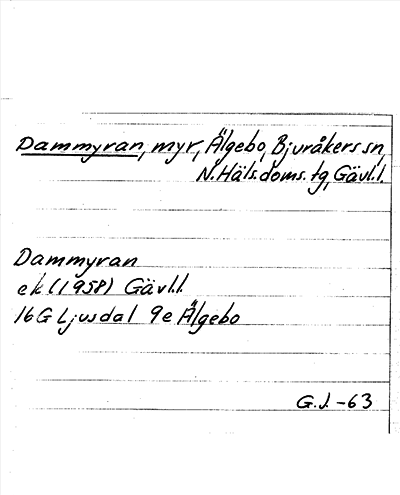 Dammyran, myr, Älgebo, Bjuråkers sn,
N. Häls. doms. tg, Gävl.l.
Dammyran
ek (1958) Gävl.l.
16G Ljusdal 9e Älgebo
G.J. -63